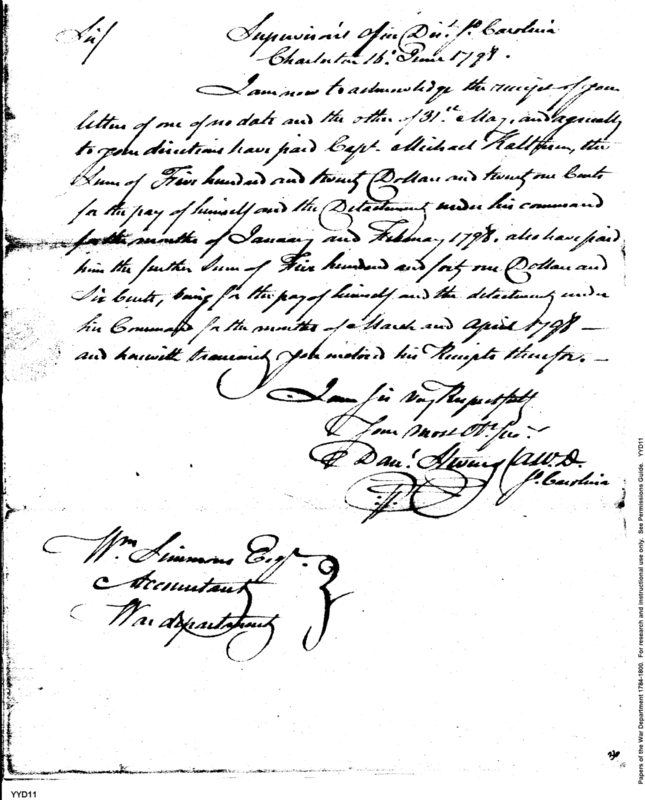 Sir/ Supervisor's Office Dist. So. Carolina
Charleston 16th June 1798.
I am now to acknowledge the receipt of your
letters of one of no date and the other of 31st May, and agreeably
to your directions have paid Capt. Michael Kalteisen, the
Sum of Five hundred and twenty Dollars and twenty one Cents
for the pay of himself and the Detachment under his command
for the months of January and February 1798. also have paid
him the further Sum of Five hundred and forty one Dollars and
Six Cents, being for the pay of himself and the detachment under
his Command for the months of March and April 1798 —
and herewith transmit you inclosed his Receipts therefor. —
I am Sir very Respectfully
Your most Ob. Ser.
Dan. Stevens A.W.D.
So. Carolina
Wm Simmons Esqr.
Accountant
War department
Papers of the War Department 1784-1800. For research and instructional use only. See Permissions Guide. YYD11
YYD11